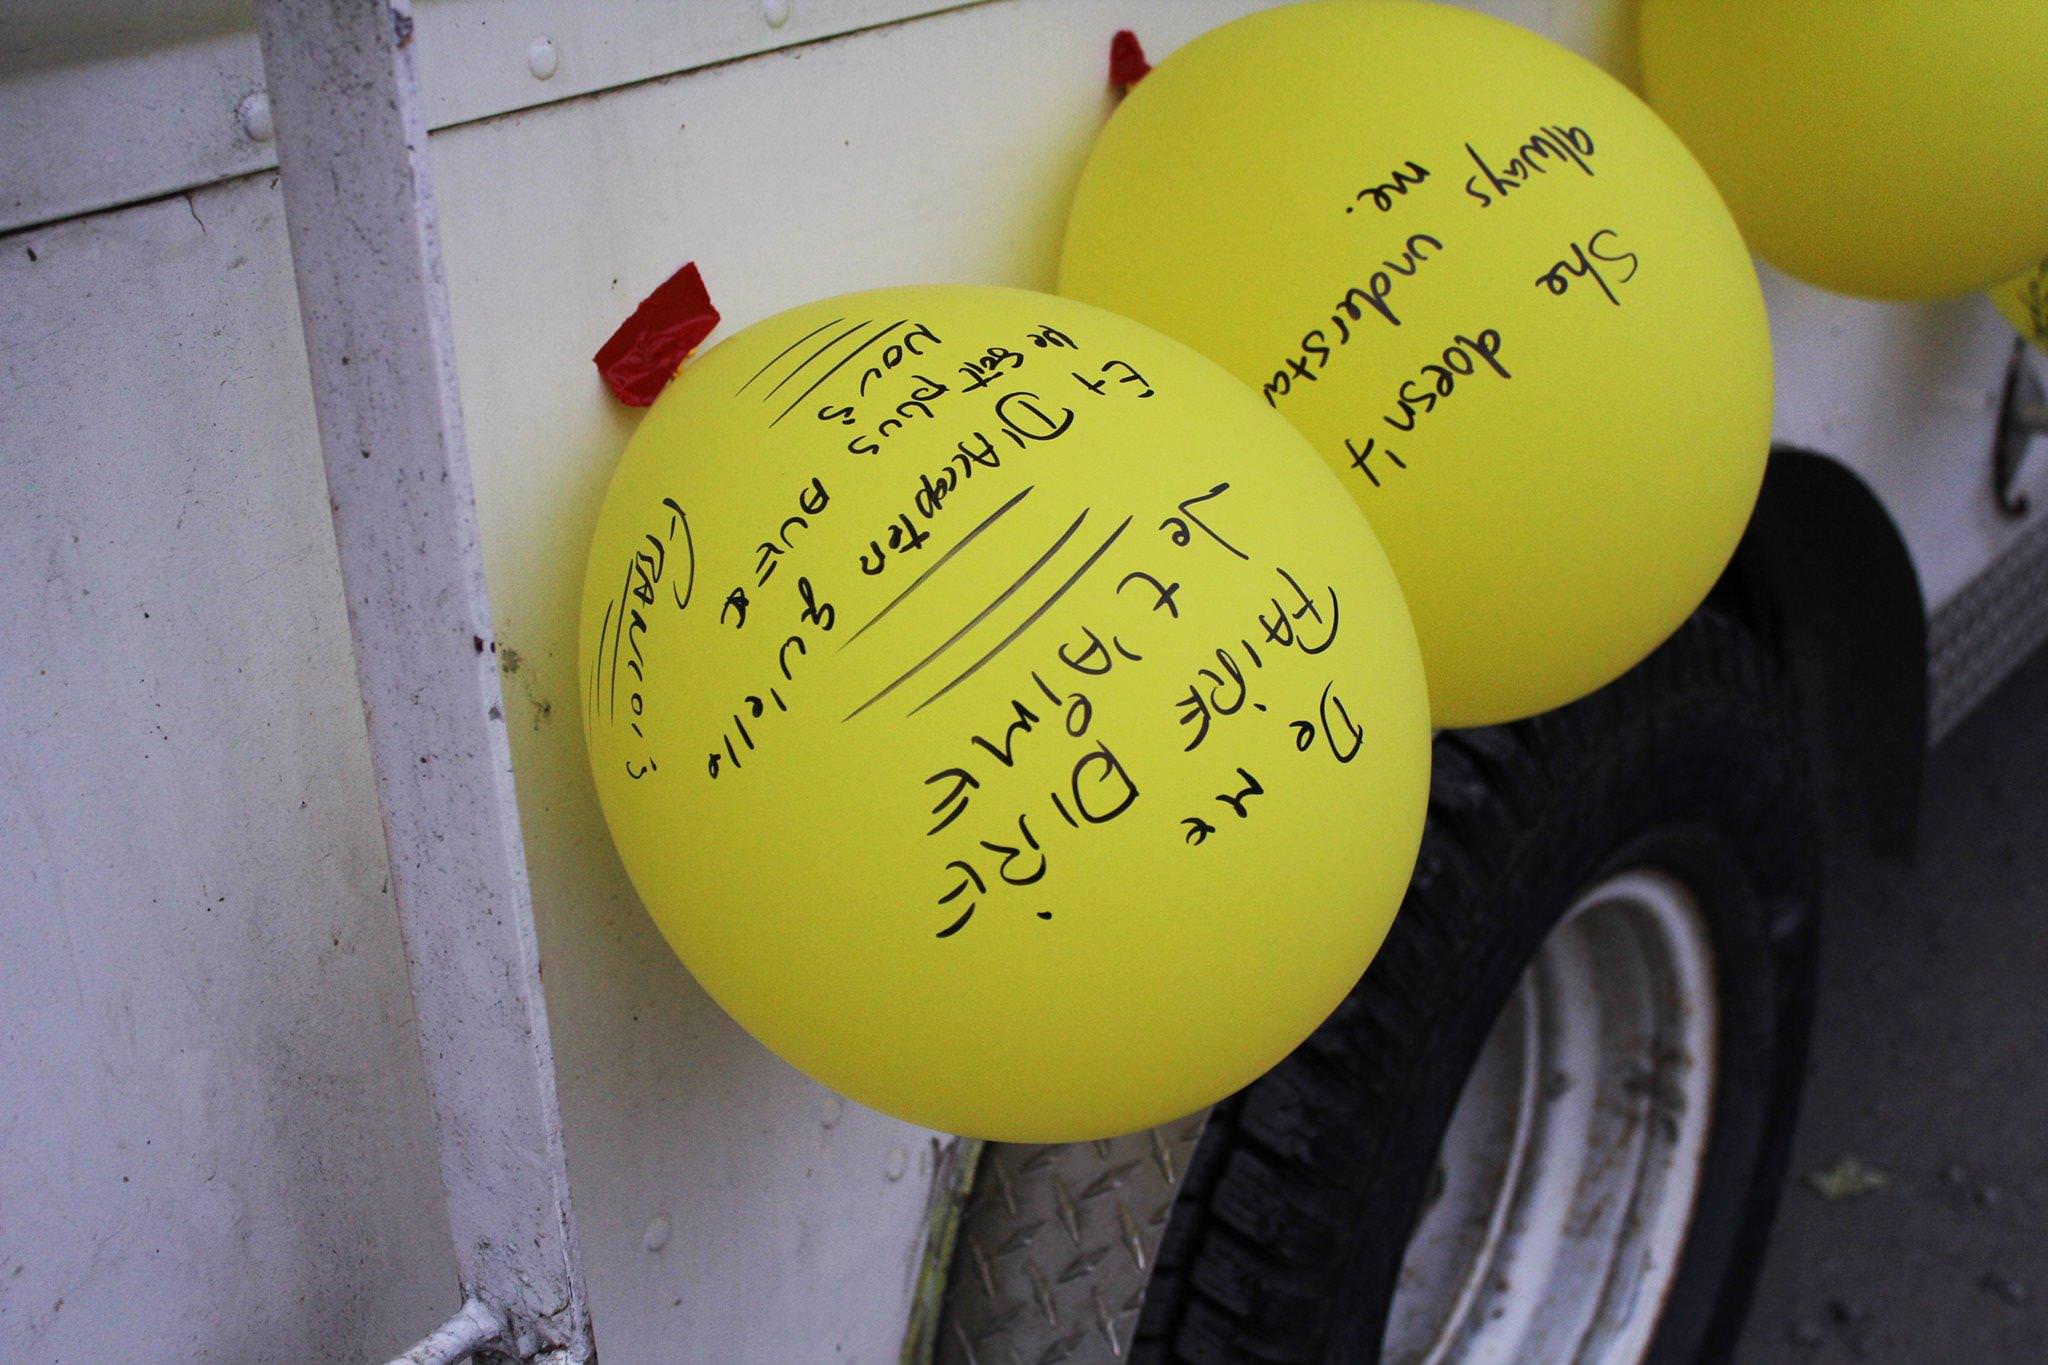 De me
FAIRE DIRE
Je t'AIME
Et D'Accepter qu'elle
Ne soit plus AVEC
NOUS
FRANCOIS
She doesn't
always understa
me.